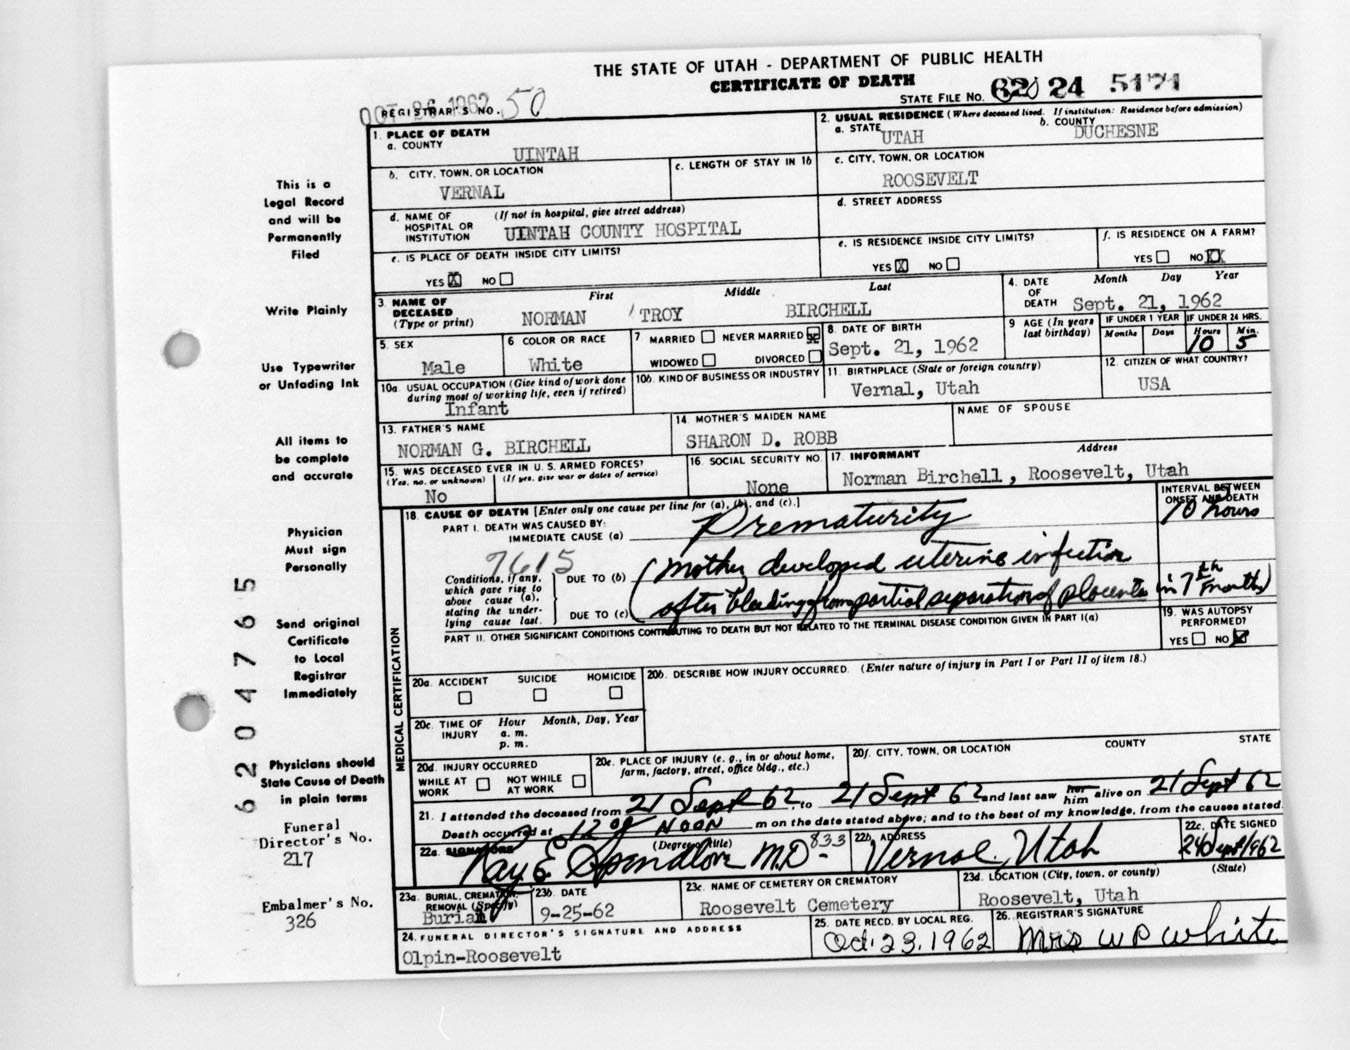 THE STATE OF UTAH - DEPARTMENT OF PUBLIC HEALTH
CERTIFICATE OF DEATH
STATE FILE NO. 62 24 5171
OCT 26 1962
REGISTRAR'S NO. 50
1. PLACE OF DEATH
a. COUNTY
UINTAH
2. USUAL RESIDENCE (Where deceased lived. If institution: Residence before admission)
a. STATE UTAH b. COUNTY DUCHESNE
b. CITY, TOWN, OR LOCATION
VERNAL
c. LENGTH OF STAY IN 1b
c. CITY, TOWN, OR LOCATION
ROOSEVELT
d. NAME OF HOSPITAL OR INSTITUTION (If not in hospital, give street address)
UINTAH COUNTY HOSPITAL
d. STREET ADDRESS
e. IS PLACE OF DEATH INSIDE CITY LIMITS?
YES X NO
e. IS RESIDENCE INSIDE CITY LIMITS?
YES X NO
f. IS RESIDENCE ON A FARM?
YES NO XX
3. NAME OF DECEASED (Type or print)
First Middle Last
NORMAN TROY BIRCHELL
4. DATE OF DEATH Month Day Year
Sept. 21, 1962
5. SEX
Male
6 COLOR OR RACE
White
7 MARRIED NEVER MARRIED X
WIDOWED DIVORCED
8. DATE OF BIRTH
Sept. 21, 1962
9 AGE (In years last birthday)
IF UNDER 1 YEAR IF UNDER 24 HRS.
Months Days Hours Min.
10 5
10a. USUAL OCCUPATION (Give kind of work done during most of working life, even if retired)
Infant
10b. KIND OF BUSINESS OR INDUSTRY
11. BIRTHPLACE (State or foreign country)
Vernal, Utah
12. CITIZEN OF WHAT COUNTRY?
USA
13. FATHER'S NAME
NORMAN G. BIRCHELL
14. MOTHER'S MAIDEN NAME
SHARON D. ROBB
NAME OF SPOUSE
15. WAS DECEASED EVER IN U.S. ARMED FORCES?
(Yes, no, or unknown) (If yes, give war or dates of service)
No
16. SOCIAL SECURITY NO.
None
17. INFORMANT Address
Norman Birchell, Roosevelt, Utah
18. CAUSE OF DEATH [Enter only one cause per line for (a), (b), and (c).]
PART I. DEATH WAS CAUSED BY:
IMMEDIATE CAUSE (a) Prematurity
INTERVAL BETWEEN ONSET AND DEATH
10 hours
7615
Conditions, if any, which gave rise to above cause (a), stating the underlying cause last.
DUE TO (b) (Mother developed uterine infection
DUE TO (c) after bleeding from partial separation of placenta in 7th month)
PART II. OTHER SIGNIFICANT CONDITIONS CONTRIBUTING TO DEATH BUT NOT RELATED TO THE TERMINAL DISEASE CONDITION GIVEN IN PART I(a)
19. WAS AUTOPSY PERFORMED?
YES NO X
MEDICAL CERTIFICATION
20a. ACCIDENT SUICIDE HOMICIDE
20b. DESCRIBE HOW INJURY OCCURRED. (Enter nature of injury in Part I or Part II of item 18.)
20c. TIME OF INJURY Hour Month, Day, Year
a. m.
p. m.
20d. INJURY OCCURRED
WHILE AT WORK NOT WHILE AT WORK
20e. PLACE OF INJURY (e. g., in or about home, farm, factory, street, office bldg., etc.)
20f. CITY, TOWN, OR LOCATION COUNTY STATE
21. I attended the deceased from 21 Sept 62, to 21 Sept 62 and last saw her him alive on 21 Sept 62
Death occurred at 12 NOON m on the date stated above; and to the best of my knowledge, from the causes stated.
22a. SIGNATURE (Degree or title)
Ray E Spendlove M.D. 833
22b. ADDRESS
Vernal, Utah
22c. DATE SIGNED
24 Sept 1962
23a. BURIAL, CREMATION, REMOVAL (Specify)
Burial
23b. DATE
9-25-62
23c. NAME OF CEMETERY OR CREMATORY
Roosevelt Cemetery
23d. LOCATION (City, town, or county) (State)
Roosevelt, Utah
24. FUNERAL DIRECTOR'S SIGNATURE AND ADDRESS
Olpin-Roosevelt
25. DATE RECD. BY LOCAL REG.
Oct. 23, 1962
26. REGISTRAR'S SIGNATURE
Mrs W P White
This is a
Legal Record
and will be
Permanently
Filed
Write Plainly
Use Typewriter
or Unfading Ink
All items to
be complete
and accurate
Physician
Must sign
Personally
Send original
Certificate
to Local
Registrar
Immediately
Physicians should
State Cause of Death
in plain terms
Funeral
Director's No.
217
Embalmer's No.
326
6204765